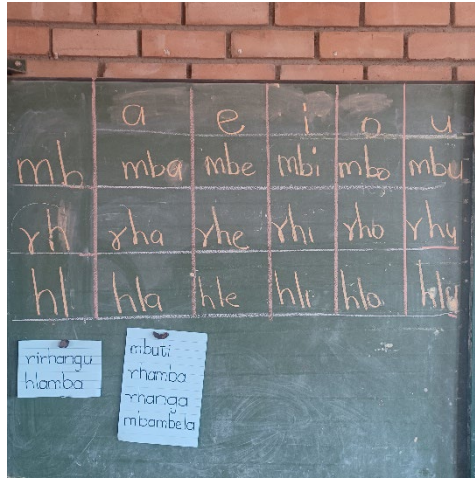 a e i o u
mb mba mbe mbi mbo mbu
rh rha rhe rhi rho rhu
hl hla hle hli hlo hlu
rirhangu
hlamba
mbuti
rhamba
rhanga
mbambela